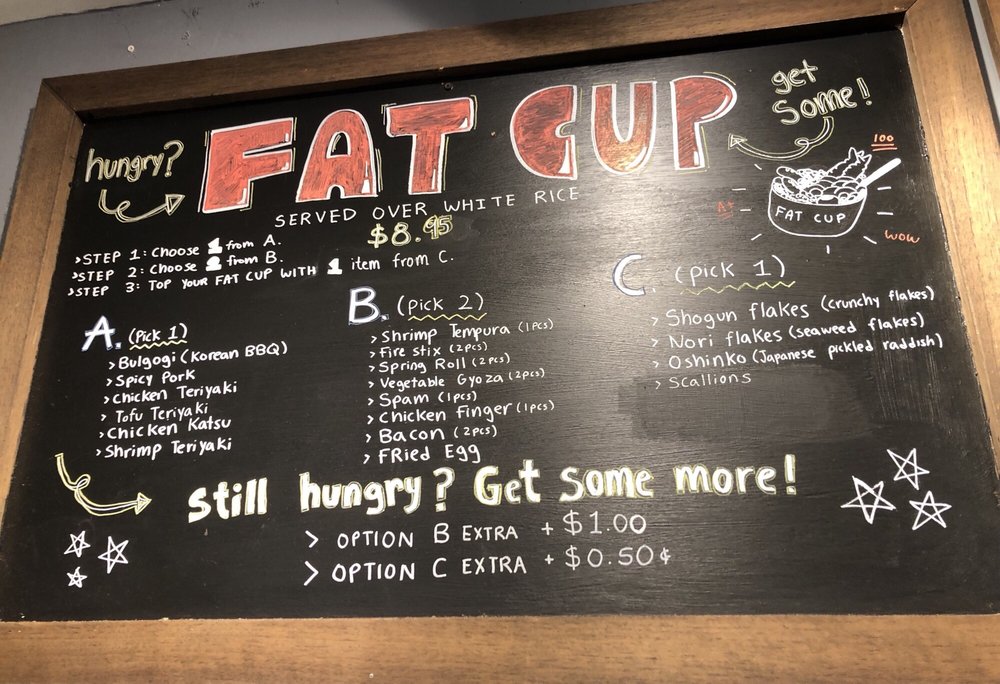 hungry?
FAT CUP
get
some!
SERVED OVER WHITE RICE
$8.95
>STEP 1: Choose 1 from A.
>STEP 2: Choose 2 from B.
>STEP 3: TOP YOUR FAT CUP WITH 1 item from C.
100
A+
FAT CUP
WOW
A. (Pick 1)
>Bulgogi (Korean BBQ)
>Spicy Pork
>Chicken Teriyaki
> Tofu Teriyaki
>Chicken Katsu
>Shrimp Teriyaki
B. (pick 2)
>Shrimp Tempura (1pcs)
>Fire stix (2pcs)
>Spring Roll (2pcs)
>Vegetable Gyoza (2pcs)
>Spam (1pcs)
>Chicken Finger (1pcs)
>Bacon (2pcs)
>FRied Egg
C. (pick 1)
> Shogun flakes (crunchy flakes)
> Nori flakes (seaweed flakes)
> Oshinko (Japanese pickled raddish)
> Scallions
Still hungry? Get some more!
> OPTION B EXTRA + $1.00
> OPTION C EXTRA + $0.50¢